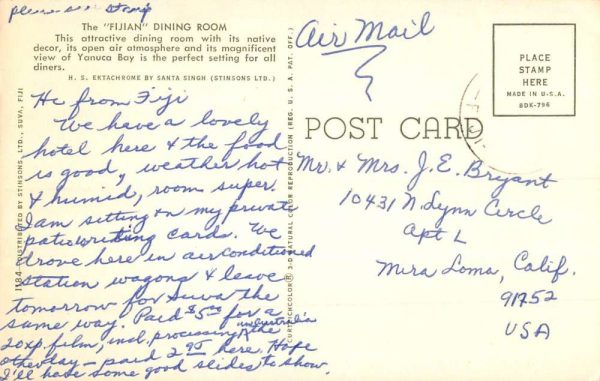 Please save stamp
The "FIJIAN" DINING ROOM
This attractive dining room with its native
decor, its open air atmosphere and its magnificent
view of Yanuca Bay is the perfect setting for all
diners.
H. S. EKTACHROME BY SANTA SINGH (STINSONS LTD.)
Hi from Fiji
We have a lovely
hotel here & the food
is good, weather hot
& humid, room super.
I am sitting on my private
patio writing cards. We
drove here in air conditioned
station wagons & leave
tomorrow for Suva the
same way. Paid $5.00 for a
20 xp. film, incl. processing in Australia the
other day - paid 2.95 here. Hope
I'll have some good slides to show.
1184 DISTRIBUTED BY STINSONS, LTD., SUVA, FIJI
CURTEICHCOLOR® 3-D NATURAL COLOR REPRODUCTION (REG. U. S. A. PAT. OFF.)
Air Mail
PLACE
STAMP
HERE
MADE IN U.S.A.
8DK-796
POST CARD
Mr. & Mrs. J. E. Bryant
10431 N. Lynn Circle
Apt L
Mira Loma, Calif.
91752
USA